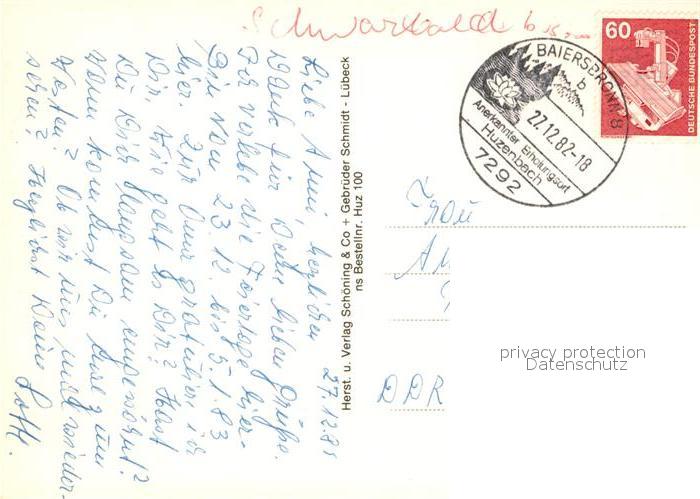 Schwarzwald b
60
DEUTSCHE BUNDESPOST
BAIERSBRONN 8
b
27.12.82-18
Anerkannter Erholungsort
Huzenbach
7292
27.12.8
Liebe Anni, herzlichen
Dank für Deine lieben Grüße.
Ich verlebe die Feiertage hier.
Bin vom 23.12. bis 5.1.83
hier. Zur Oma gratuliere ich
Dir. Wie geht es Dir? Hast
Du Dich langsam eingewöhnt?
Wann kommst Du mal zum
Westen? Ob wir uns mal wieder-
sehen? Herzlichst Deine
Herst. u. Verlag Schöning & Co + Gebrüder Schmidt - Lübeck
ns Bestellnr. Huz 100
Frau
DDR
privacy protection
Datenschutz